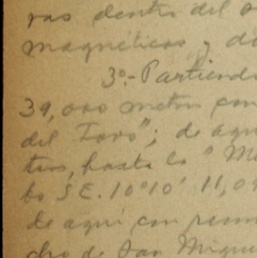 ras dentro del
magnéticos y d
3º.- Partiendo
39,000 metros con
del Toro"; de aqu
tros, hasta la "M
bo S.E. 10º10' 11,0
de aquí con rum
cho de San Migue